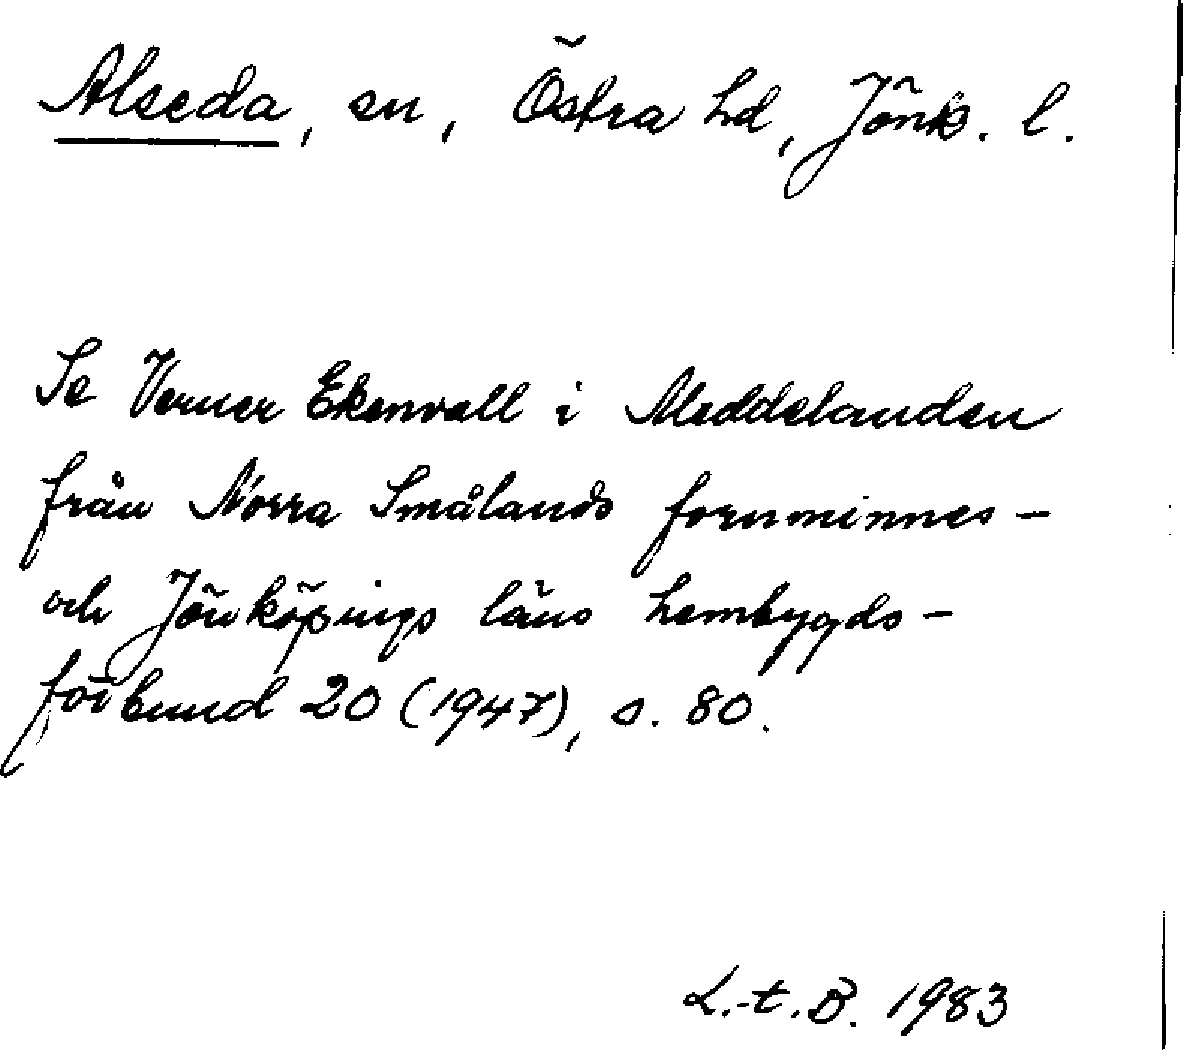 Alseda, sn, Östra hd, Jönk. l.
Se Verner Ekenvall i Meddelanden
från Norra Smålands fornminnes-
och Jönköpings läns hembygds-
förbund 20 (1947), s. 80.
L.-t. B. 1983